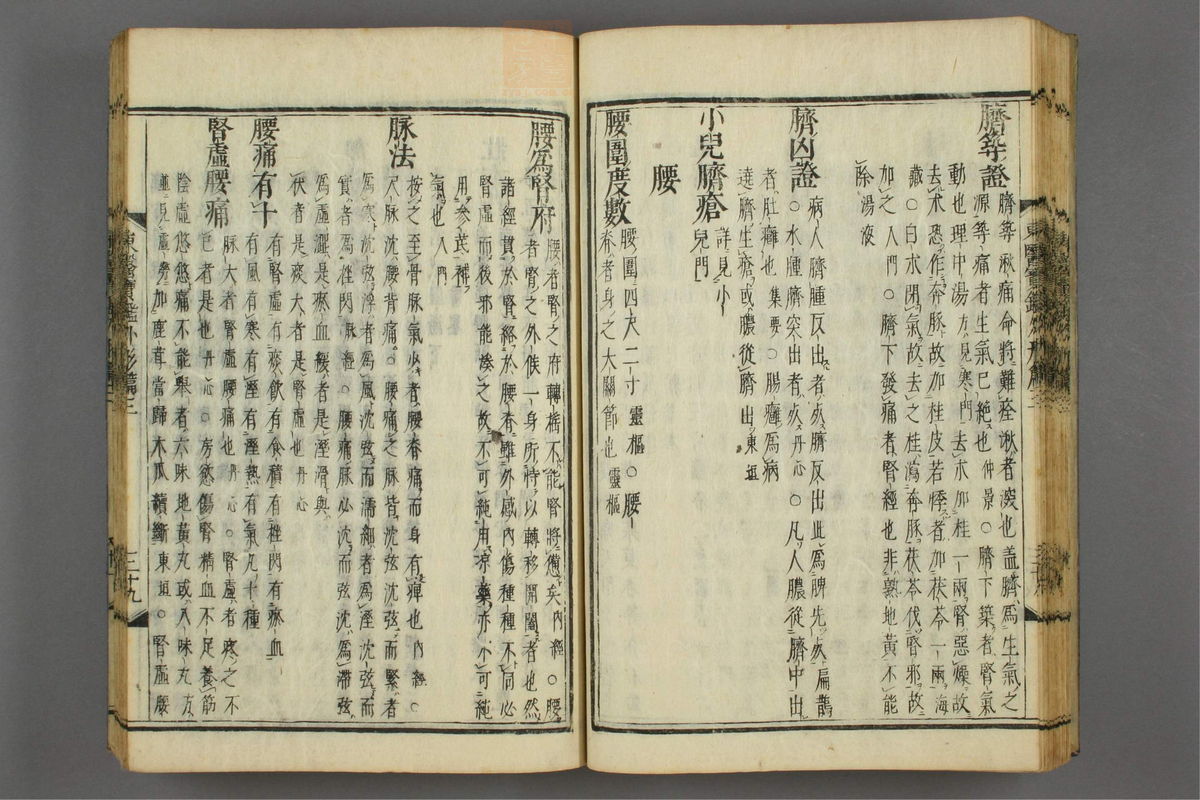 臍築證 臍築湫痛命將難痊湫者深也盖臍爲生氣之
源築痛者生氣已絶也仲景○臍下築者腎氣
動也理中湯方見寒門去朮加桂一兩腎惡燥故
去朮恐作奔豚故加桂皮若悸者加茯苓一兩海
藏○白朮閉氣故去之桂瀉奔豚茯苓伐腎邪故
加之入門○臍下發痛者腎經也非熟地黃不能
除湯液
臍凶證 病人臍腫反出者死臍反出此爲脾先死扁鵲
○水腫臍突出者死丹心○凡人膿從臍中出
者肚癰也集要○腸癰爲病
遶臍生瘡或膿從臍出東垣
小兒臍瘡 詳見小
兒門
腰
腰圍度數 腰圍四尺二寸靈樞○腰
脊者身之大關節也靈樞
腰爲腎府 腰者腎之府轉搖不能腎將憊矣內經○腰
者腎之外候一身所恃以轉移開闔者也然
諸經貫於腎經於腰脊雖外感內傷種種不同必
腎虛而後邪能湊之故不可純用凉藥亦不可純
用參芪補
氣也入門
脉法 按之至骨脉氣少者腰脊痛而身有痺也內經○
尺脉沈腰背痛○腰痛之脉皆沈弦沈弦而緊者
爲寒沈弦浮者爲風沈弦而濡細者爲溼沈弦而
實者爲挫閃脉經○腰痛脉必沈而弦沈爲滯弦
爲虛澀是瘀血緩者是溼滑與
伏者是痰大者是腎虛也丹心
腰痛有十 有腎虛有痰飮有食積有挫閃有瘀血
有風有寒有溼有溼熱有氣凡十種
腎虛腰痛 脉大者腎虛腰痛也丹心○腎虛者疼之不
已者是也丹心○房慾傷腎精血不足養筋
陰虛悠悠痛不能擧者六味地黃丸或八味丸方
並見虛勞加鹿茸當歸木瓜續斷東垣○腎虛腰
東醫寶鑑外形篇三
三十九